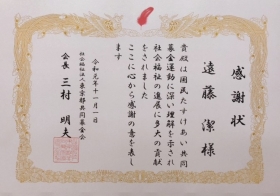 感謝状
遠藤 潔 様
貴殿は国民たすけあい共同
募金運動に深い理解を示され
社会福祉の進展に多大の貢献
をされました
ここに心から感謝の意を表し
ます
令和元年十一月一日
社会福祉法人東京都共同募金会
会長 三村 明夫